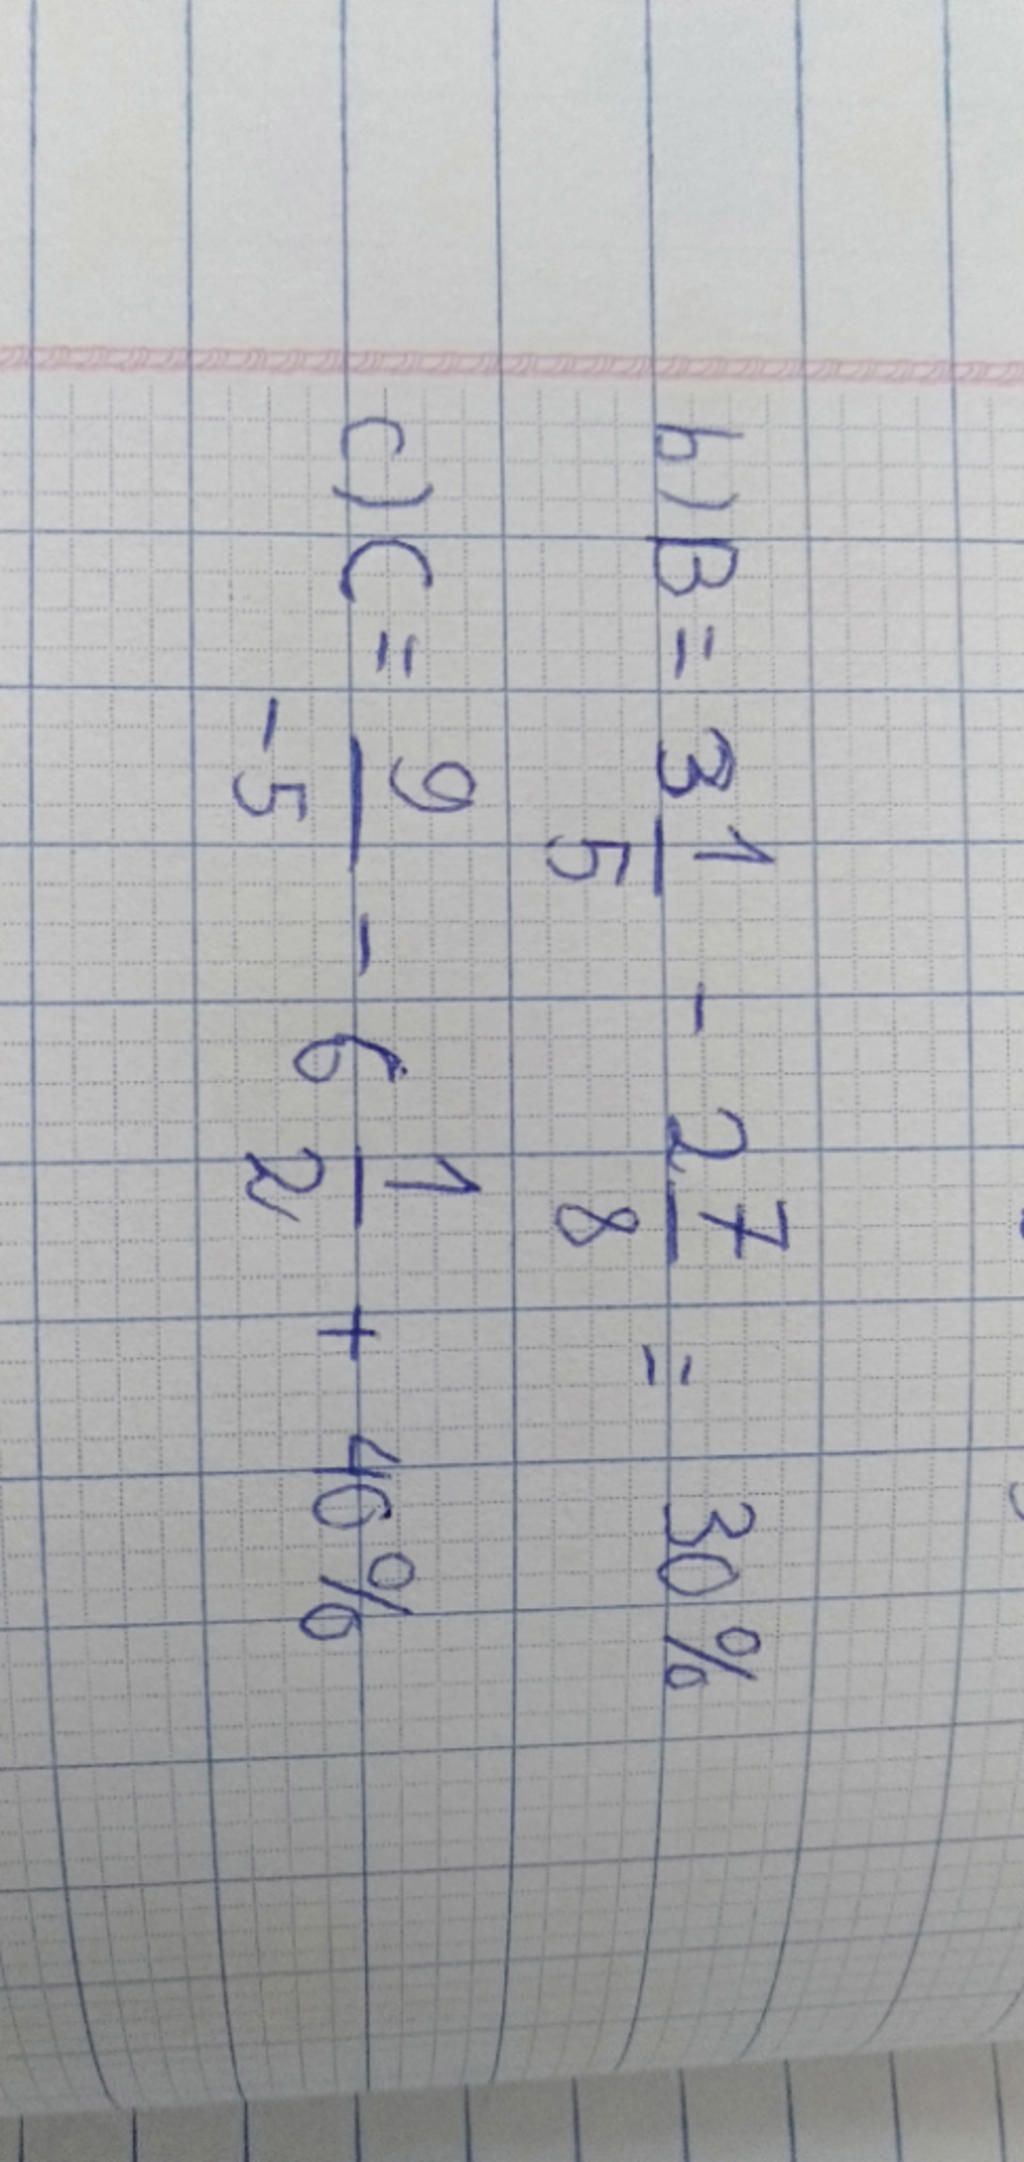 b) B = 3 1/5 - 2 7/8 = 30%
c) C = 9/-5 - 6 1/2 + 40%